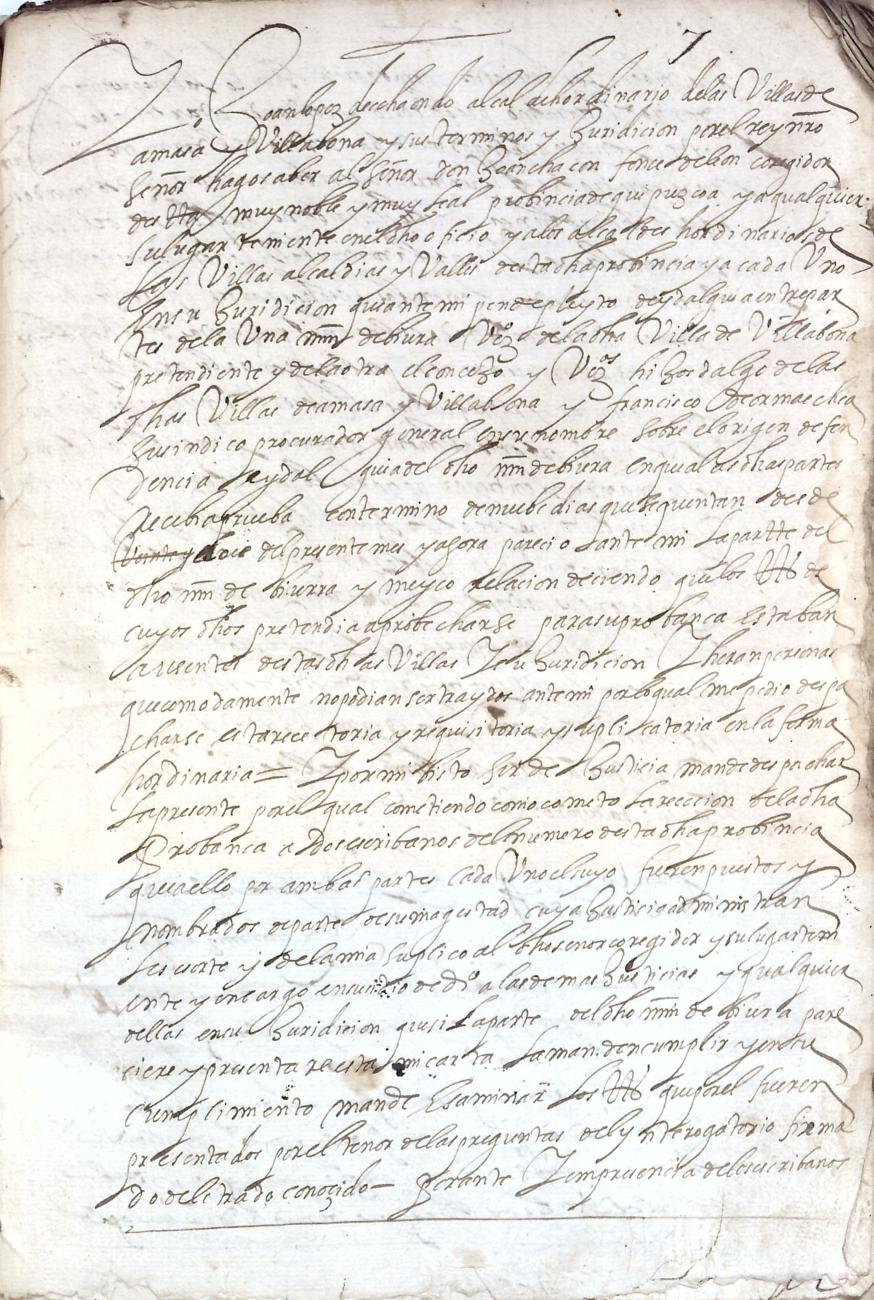 7
Yo Joan lopez de echaendo alcalde hordinario de las Villas de
amasa y Villabona y sus terminos y Juridicion por el rey nro
señor hago saber al señor don Joan chacon fonce de leon coregidor
desta muy noble y muy leal probincia de guipuzcoa y a qualquier
su lugar teniente en el dho oficio y a los alcaldes hordinarios de
las Villas alcaldias y Valles desta dha probincia y a cada Vno
en su Juridicion que ante mi pende pleyto de ydalguia entre par
tes de la Vna mrn de biura Vzo de la dha Villa de Villabona
pretendiente y de la otra el concejo y Vezos hijosdalgo de las
dhas Villas de amasa y Villabona y francisco de ormaechea
su sindico procurador general en su nombre sobre el origen defen
dencia e ydalguia del dho mrn de biura en qual a as dhas partes
Recebi a prueba con termino de nuebe dias que se quentan desde
doce del presente mes y agora parecio ante mi la parte del
dho mrn de biurra y me yco relacion deciendo que los tts de
cuyos dhos pretendia aprobecharse para su probanca estaban
ausentes destas dhas Villas y su Juridicion y heran personas
que comodamente no podian ser traydos ante mi por lo qual me pedio despa
charse esta recetoria y requisitoria y suplicatoria en la forma
hordinaria = y por mi bisto ser de Justicia mande despachar
la presente por el qual cometiendo como cometo la rececion de la dha
Probanca a dos escribanos del numero desta dha probincia
que a ello por ambas partes cada Vno el suyo fueren puestos y
nombrados de parte de su magestad cuya Justicia administran
les exorto y de la mia suplico al dho senor coregidor y su lugartem
ente y encargo en su oficio de dro a las demas Justicias y qualquier
dellas en su Juridicion que si la parte del dho mrn de biura pare
ciere y presentare esta mi carta la manden cumplir y en su
cumplimiento mande Esaminar los tts que por el fueren
presentados por el tenor de las preguntas del ynterogatorio firma
do de letrado conozido = Perante y em presencia de los escribanos